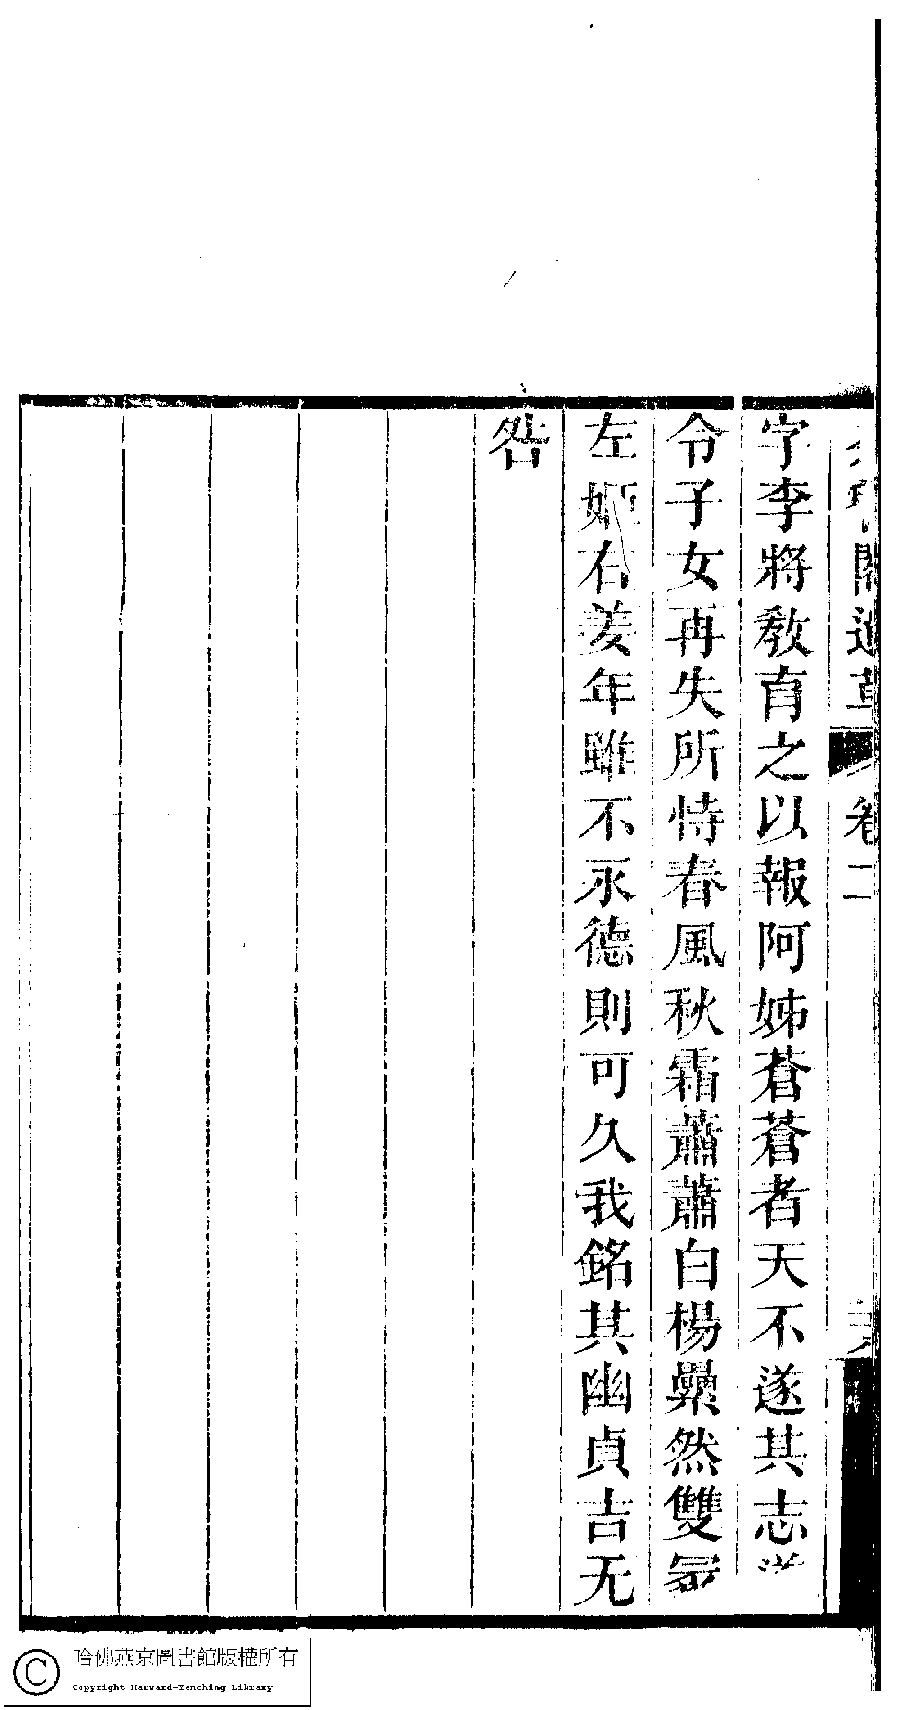 字李將敎育之以報阿姊蒼蒼者天不遂其志
令子女再失所恃春風秋霜蕭蕭白楊纍然雙冢
左姬右姜年雖不永德則可久我銘其幽貞吉无
咎
遺草
卷二
哈佛燕京圖書館版權所有
Copyright Harvard-Yenching Library